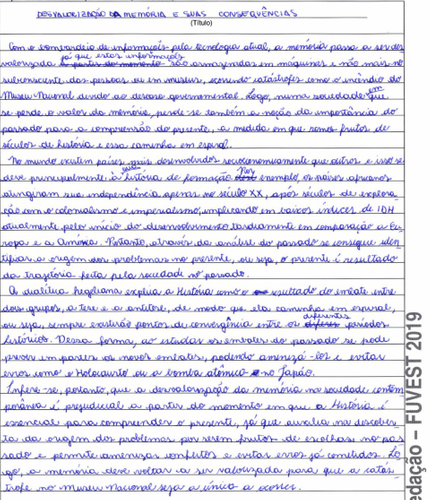 DESVALORIZAÇÃO DA MEMÓRIA E SUAS CONSEQUÊNCIAS
(Título)
Com o bombardeio de informações pela tecnologia atual, a memória passa a ser des
valorizada já que estas informações são armazenadas em máquinas e não mais no
subconsciente das pessoas ou em museus, ocorrendo catástrofes como o incêndio do
Museu Nacional devido ao descaso governamental. Logo, numa sociedade em que
se perde o valor da memória, perde-se também a noção da importância do
passado para a compreensão do presente, a medida em que somos frutos de
séculos de história e essa caminha em espiral.
No mundo existem países mais desenvolvidos socioeconomicamente que outros e isso se
deve principalmente à sua história de formação. Por exemplo, os países africanos
atingiram sua independência apenas no século XX, após séculos de explora
ção com o colonialismo e imperialismo, implicando em baixos índices de IDH
atualmente pelo início do desenvolvimento tardiamente em comparação a Eu
ropa e a América. Portanto, através da análise do passado se consegue iden
tificar a origem dos problemas no presente, ou seja, o presente é resultado
da trajetória feita pela sociedade no passado.
A dialética hegeliana explica a História como o resultado do embate entre
dois grupos, a tese e a antítese, de modo que ela caminha em espiral,
ou seja, sempre existirão pontos de convergência entre os diferentes períodos
históricos. Dessa forma, ao estudar os embates do passado se pode
prever em partes os novos embates, podendo amenizá-los e evitar
erros como o Holocausto ou a bomba atômica no Japão.
Infere-se, portanto, que a desvalorização da memória na sociedade contem
porânea é prejudicial a partir do momento em que a História é
essencial para compreender o presente, já que auxilia na descober
ta da origem dos problemas por serem frutos de escolhas no pas
sado e permite amenizar conflitos e evitar erros já cometidos. Lo
go, a memória deve voltar a ser valorizada para que a catás
trofe no Museu Nacional seja a única a ocorrer.
edação – FUVEST 2019